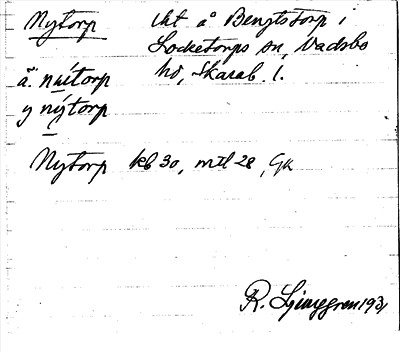 Nytorp
tht å Bengtstorp i
Locketorps sn, Vadsbo
hd, Skarab. l.
ä. nuitorp
y nýtorp
Nytorp kb 30, mtl 28, Gk
R. Ljunggren 193